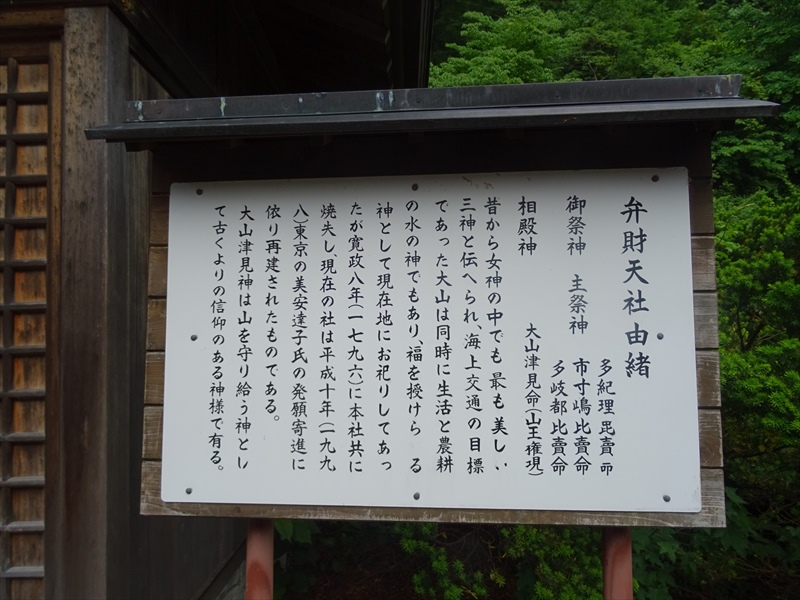 弁財天社由緒
多紀理毘賣命
御祭神　主祭神　市寸嶋比賣命
多岐都比賣命
相殿神　大山津見命(山王権現)
昔から女神の中でも最も美しい
三神と伝へられ、海上交通の目標
であった大山は同時に生活と農耕
の水の神でもあり、福を授けら　る
神として現在地にお祀りしてあっ
たが寛政八年(一七九六)に本社共に
焼失し、現在の社は平成十年(一九九
八)東京の美安達子氏の発願寄進に
依り再建されたものである。
大山津見神は山を守り給う神とし
て古くよりの信仰のある神様で有る。